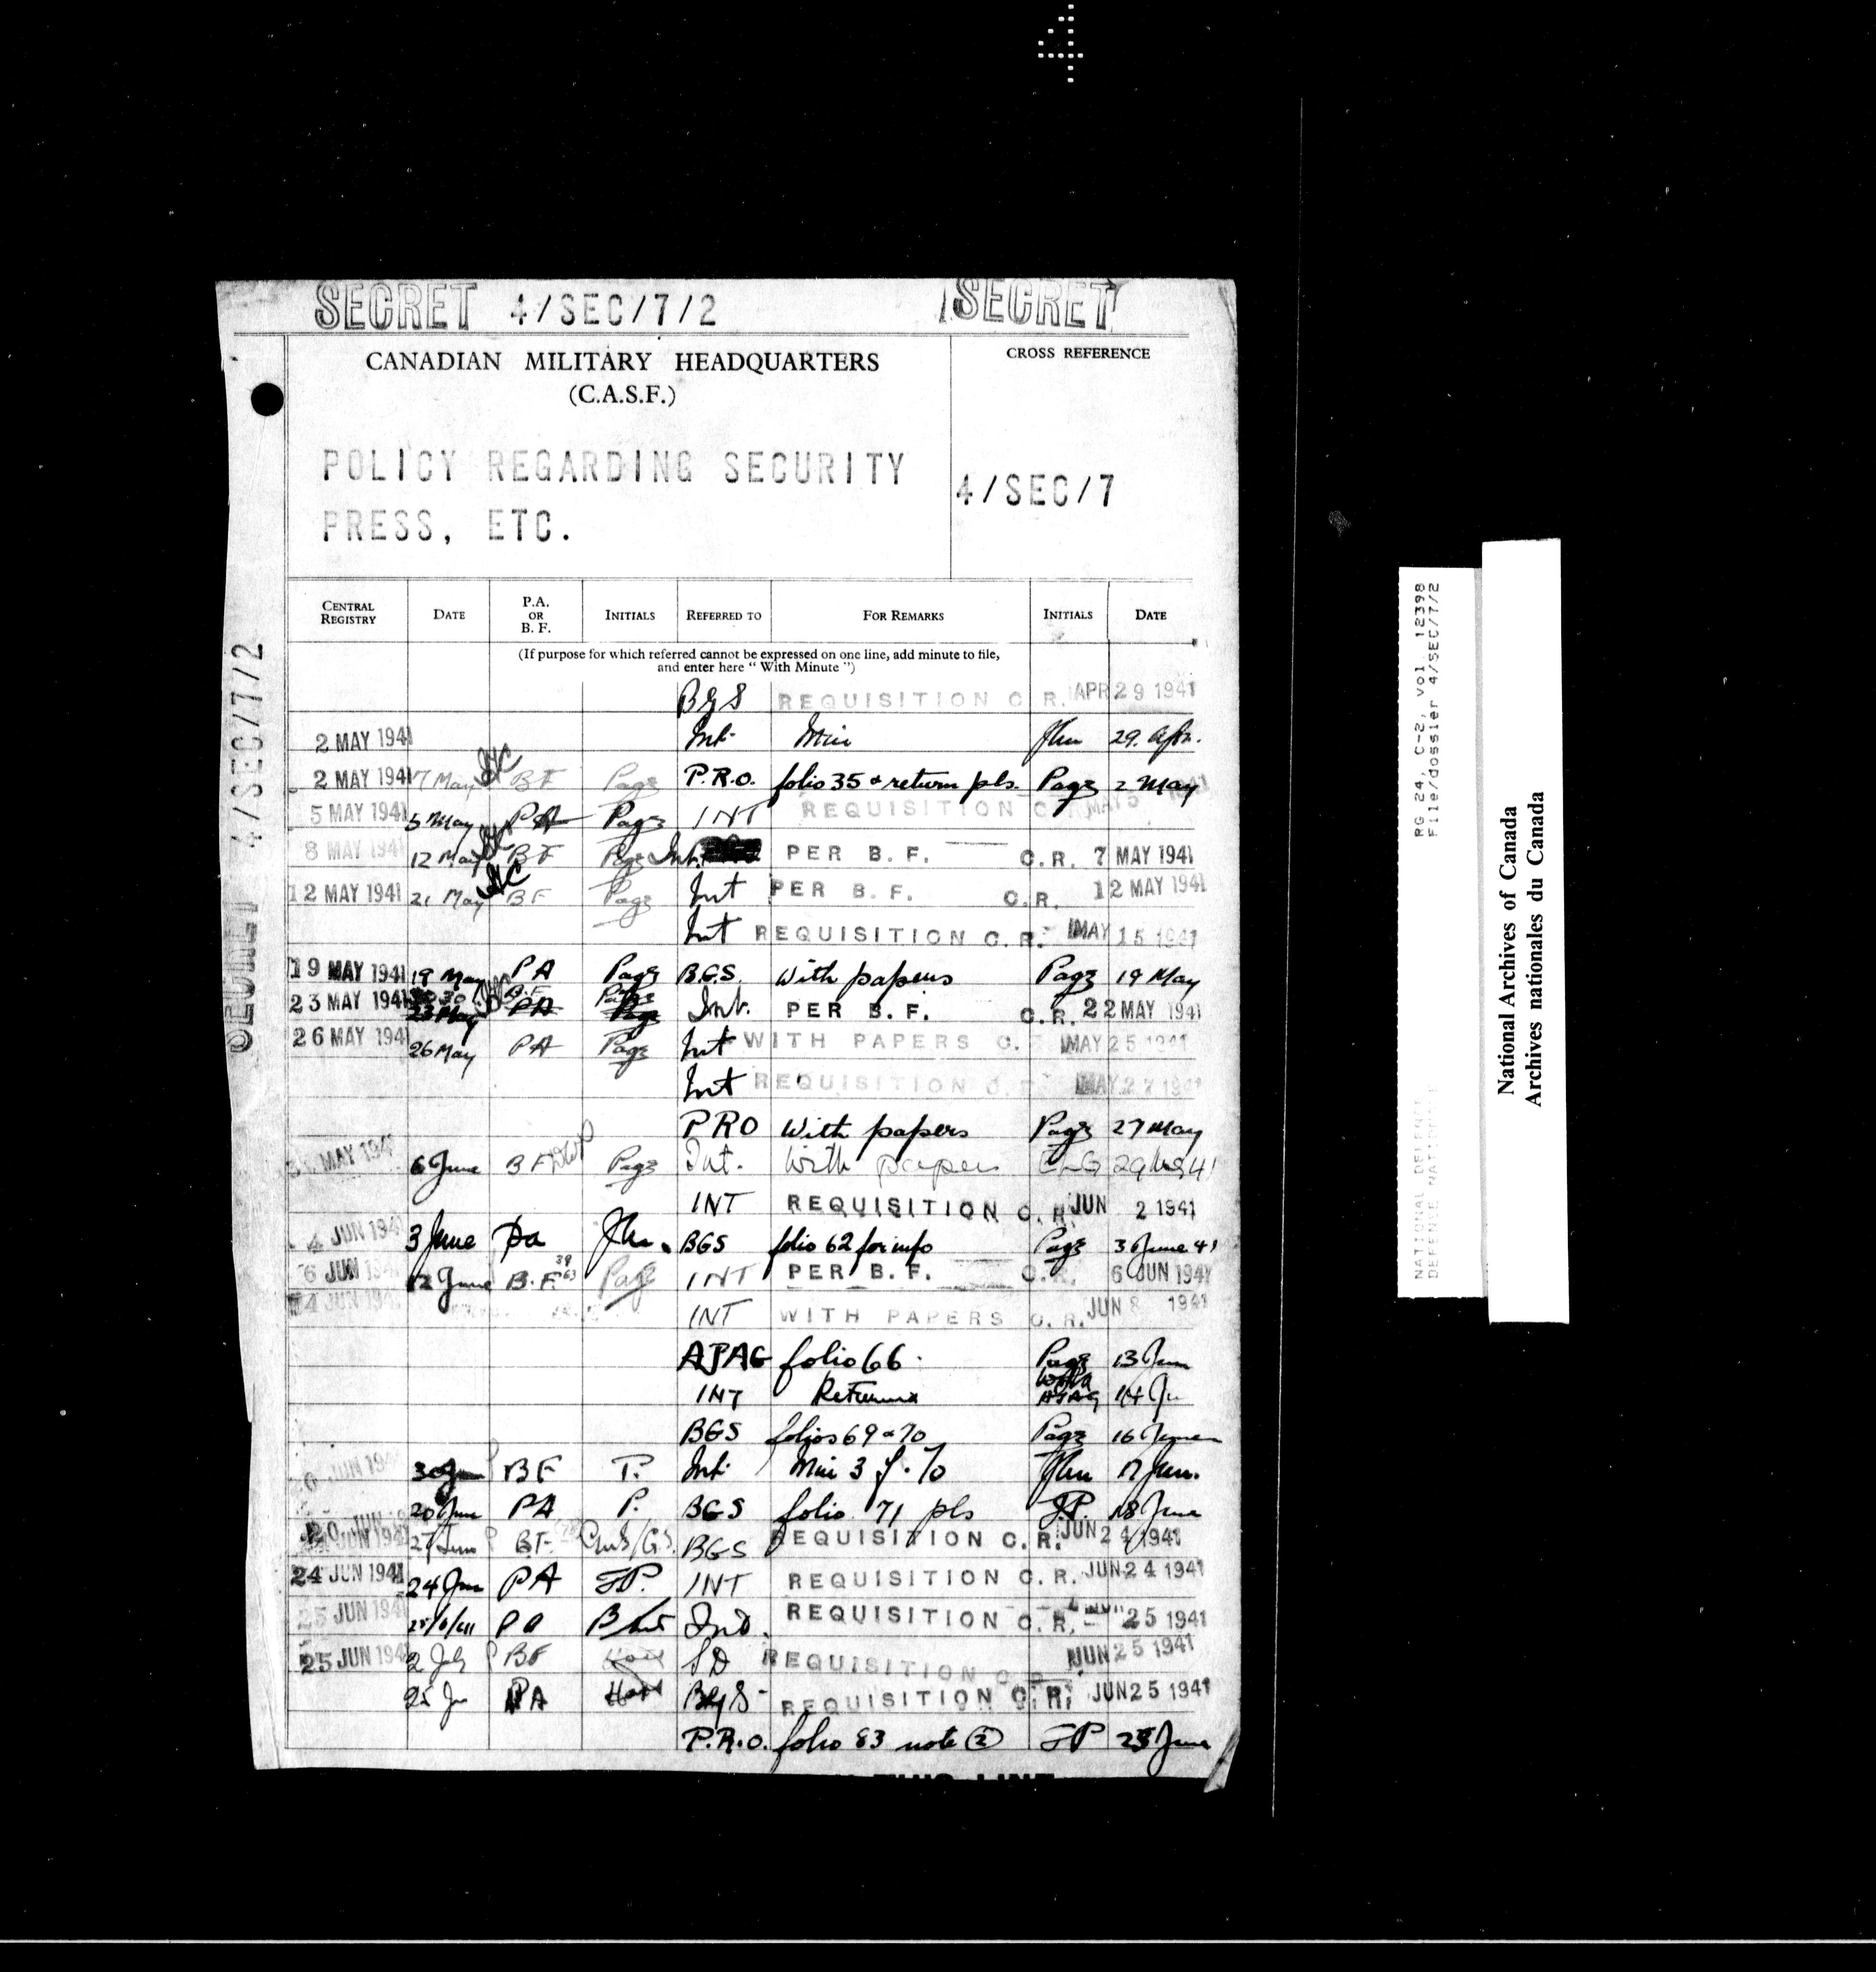 4
SECRET 4/SEC/7/2 SECRET
CANADIAN MILITARY HEADQUARTERS
(C.A.S.F.)
CROSS REFERENCE
POLICY REGARDING SECURITY
PRESS, ETC.
4/SEC/7
CENTRAL REGISTRY DATE P.A. OR B. F. INITIALS REFERRED TO FOR REMARKS INITIALS DATE
(If purpose for which referred cannot be expressed on one line, add minute to file,
and enter here "With Minute")
BGS REQUISITION C.R. APR 29 1941
2 MAY 1941 Int. Min 29. Apr.
2 MAY 1941 7 May BF Page P.R.O. folio 35 & return pls. Page 2 May
5 MAY 1941 5 May PA Page INT REQUISITION C.R. MAY 5 1941
8 MAY 1941 12 May BF Page Int. PER B.F. C.R. 7 MAY 1941
12 MAY 1941 21 May BF Page Int PER B.F. C.R. 12 MAY 1941
Int REQUISITION C.R. MAY 15 1941
19 MAY 1941 19 May PA Page B.G.S. With papers Page 19 May
23 MAY 1941 PA Page Int. PER B.F. C.R. 22 MAY 1941
26 MAY 1941 26 May PA Page Int WITH PAPERS C. MAY 25 1941
Int REQUISITION C.R. MAY 27 1941
PRO With papers Page 27 May
MAY 1941 6 June BF Page Int. With papers 29 May 41
INT REQUISITION C.R. JUN 2 1941
4 JUN 1941 3 June Pa BGS folio 62 for info Page 3 June 41
6 JUN 1941 12 June B.F. 39 63 Page INT PER B.F. C.R. 6 JUN 1941
JUN 1941 INT WITH PAPERS C.R. JUN 8 1941
AJAG folio 66. Page 13 Jun
INT Returned AJAG 14 Ju
BGS folios 69 & 70 Page 16 June
JUN 1941 30 Jun BF P. Int. Min 3 f. 70 17 Jun.
20 JUN 20 Jun PA P. BGS folio 71 pls J.P. 18 June
JUN 1941 27 June BF BGS REQUISITION C.R. JUN 24 1941
24 JUN 1941 24 Jun PA JP. INT REQUISITION C.R. JUN 24 1941
25 JUN 1941 25/6/41 PA Int. REQUISITION C.R. 25 1941
25 JUN 1941 2 July BF SD REQUISITION C.R. JUN 25 1941
25 Ju PA BGS REQUISITION C.R. JUN 25 1941
P.R.O. folio 83 note (2) JP 25 June
THIS LINE
SECRET 4/SEC/7/2
RG 24, C-2, vol 12398
File/dossier 4/SEC/7/2
NATIONAL DEFENCE
DEFENSE NATIONALE
National Archives of Canada
Archives nationales du Canada